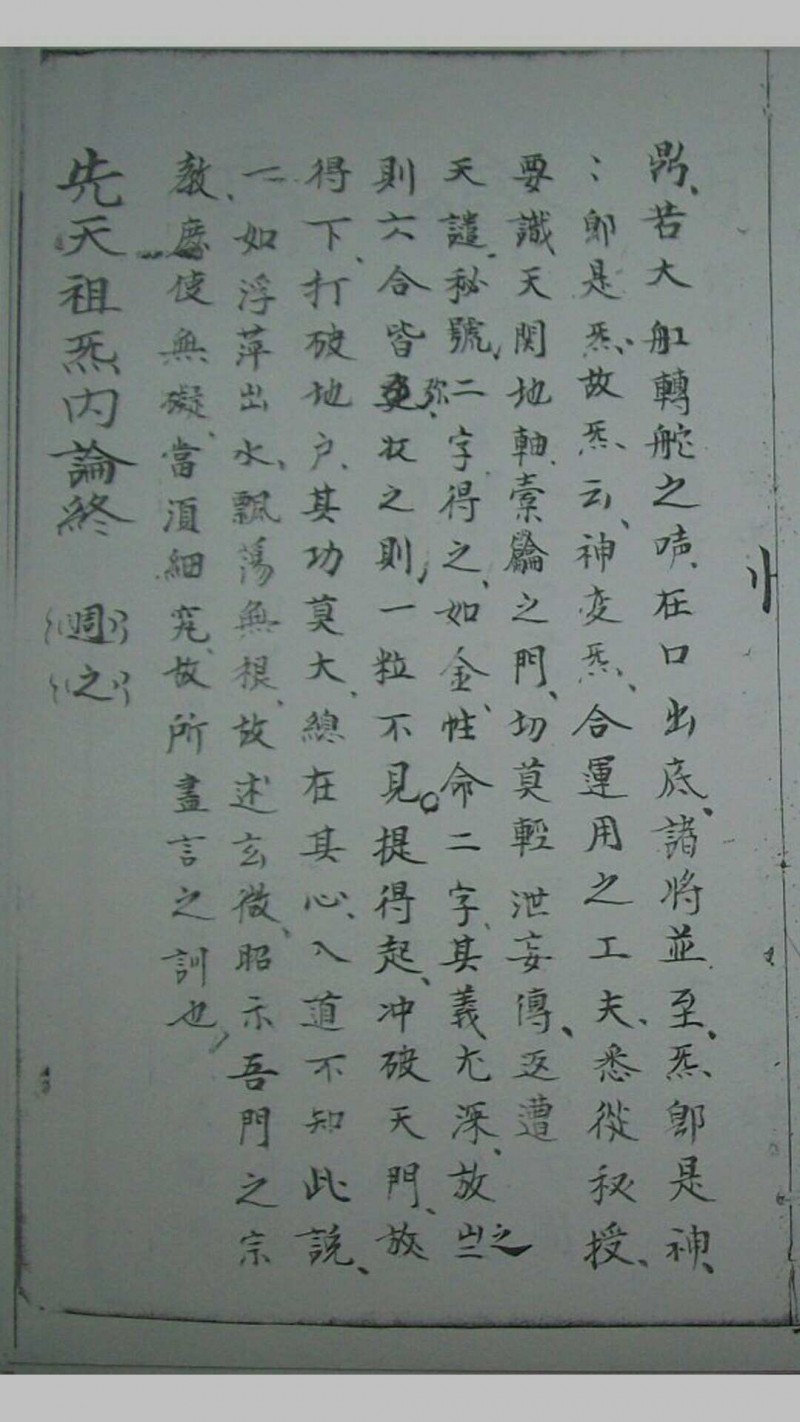 若大舡轉舵之唭在口出底諸将並至炁即是神
〻即是炁故炁云神变炁合運用之工夫悉從秘授
要識天関地軸橐籥之門切莫輕泄妄傳返遭
天譴秘號二字得之如金性命二字其義尤深放之
則六合皆弥收之則一粒不見提得起冲破天門放
得下打破地户其功莫大總在其心入道不知此說
一如浮萍出水飄蕩無根故述玄微昭示吾門之宗
教庶使無礙當須細究故所盡言之訓也
先天祖炁内論終 週之